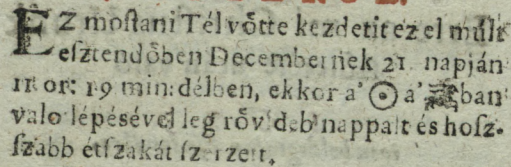 EZ moſtani Tél vȯ̈tte kezdetit ez el múlt
eſztendȯ̈ben Decembernek 21. napján
11 or: 19 min: délben, ekkor a' ☉ a' ♑ ban
valo lépésével leg rȯ̈videb nappalt és hoſz-
ſzabb étſzakát ſzerzett.